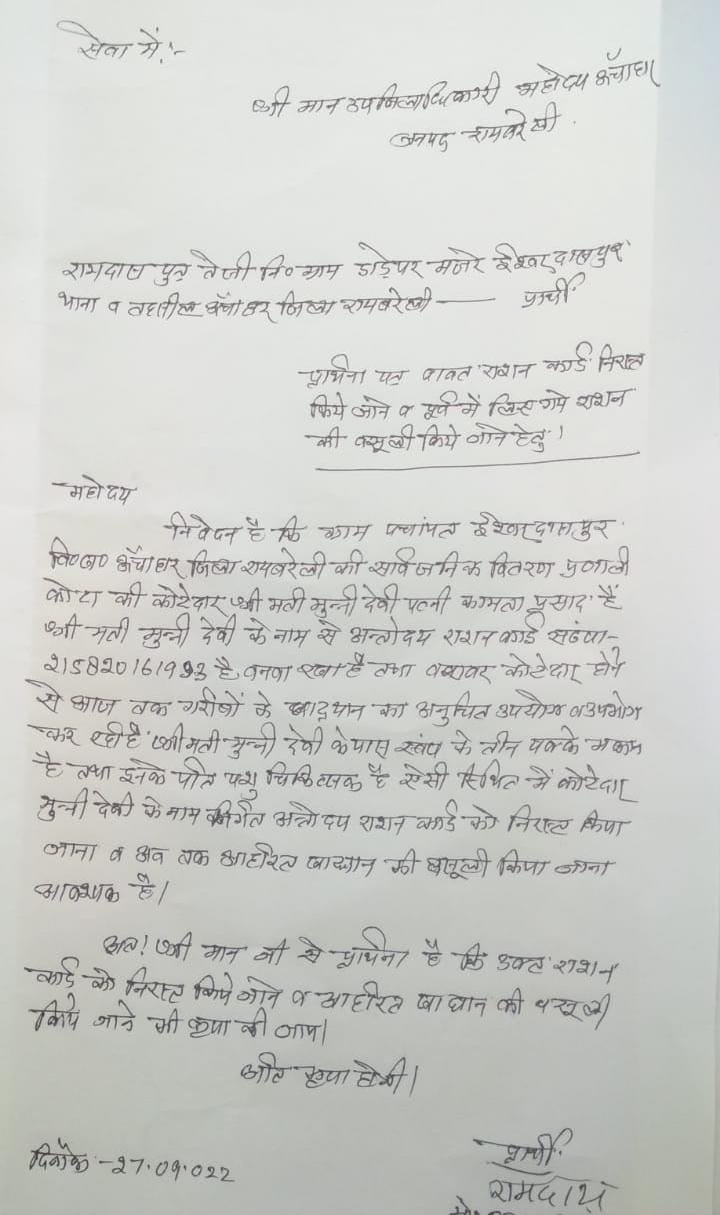 सेवा में:-
श्री मान उपजिलाधिकारी महोदय ऊँचाहार
जनपद रायबरेली.
रामदास पुत्र तेजी नि० ग्राम डाड़ेपर मजरे ईश्वरदासपुर
थाना व तहसील ऊँचाहार जिला रायबरेली —— प्रार्थी
प्रार्थना पत्र बावत राशन कार्ड निरस्त
किये जाने व पूर्व में लिए गये राशन
की वसूली किये जाने हेतु।
महोदय
निवेदन है कि ग्राम पंचायत ईश्वरदासपुर
वि०ख० ऊँचाहार जिला रायबरेली की सार्वजनिक वितरण प्रणाली
कोटा की कोटेदार श्री मती मुन्नी देवी पत्नी कामता प्रसाद है
श्री मती मुन्नी देवी के नाम से अन्तोदय राशन कार्ड संख्या-
है, बनवा रखा है तथा बराबर कोटेदार होने
से आज तक गरीबों के खाद्यान का अनुचित उपयोग व उपभोग
कर रही है श्रीमती मुन्नी देवी के पास स्वंय के तीन पक्के मकान
है तथा इनके पति पशु चिकित्सक है ऐसी स्थित में कोटेदार
मुन्नी देवी के नाम अन्तोदय राशन कार्ड को निरस्त किया
जाना व अब तक आहरित खाद्यान की वसूली किया जाना
आवश्यक है।
अतः श्री मान जी से प्रार्थना है कि उक्त राशन
कार्ड को निरस्त किये जाने व आहरित खाद्यान की वसूली
किये जाने की कृपा की जाय।
अति कृपा होगी।
दिनाँक:-27.09.022
प्रार्थी
रामदास